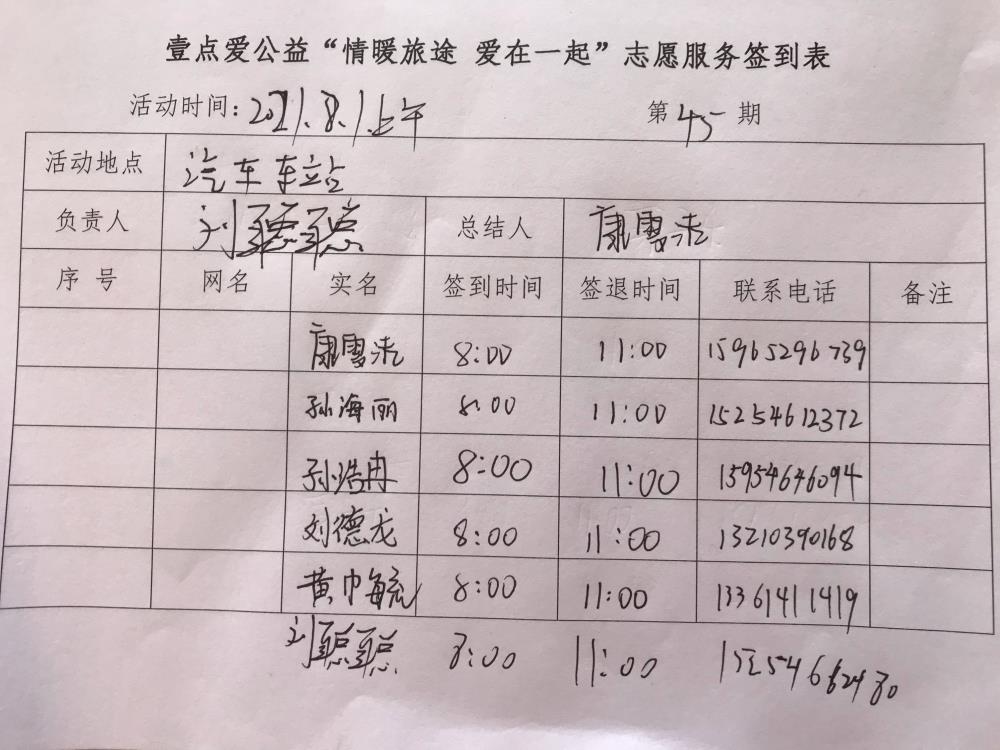 壹点爱公益“情暖旅途 爱在一起”志愿服务签到表
活动时间:2021.8.1.上午 第45期
活动地点 汽车车站
负责人 刘聪聪 总结人 康雪涛
序号 网名 实名 签到时间 签退时间 联系电话 备注
康雪涛 8:00 11:00 15965296739
孙海丽 8:00 11:00 15254612372
孙浩冉 8:00 11:00 15954646094
刘德龙 8:00 11:00 13210390168
黄巾毓 8:00 11:00 13361411419
刘聪聪 8:00 11:00 15254662480